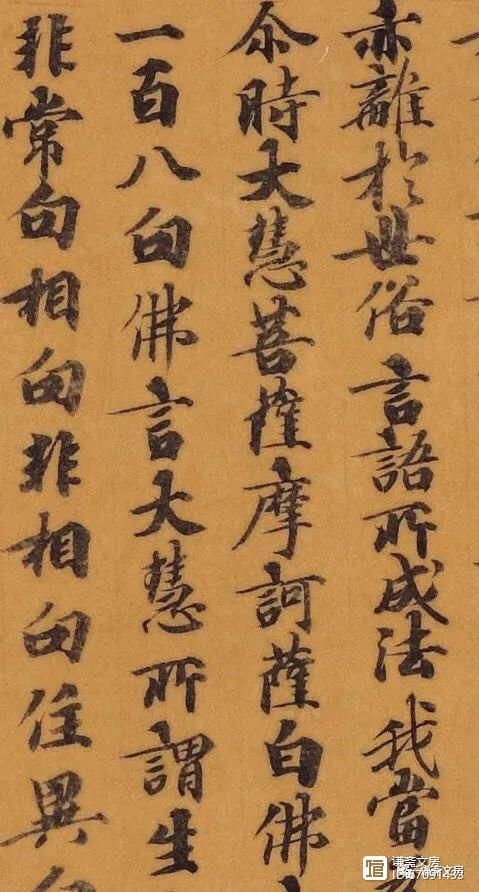 亦離於世俗言語所成法我當
尒時大慧菩薩摩訶薩白佛
一百八句佛言大慧所謂生
非常句相句非相句住異句
谦斋文房